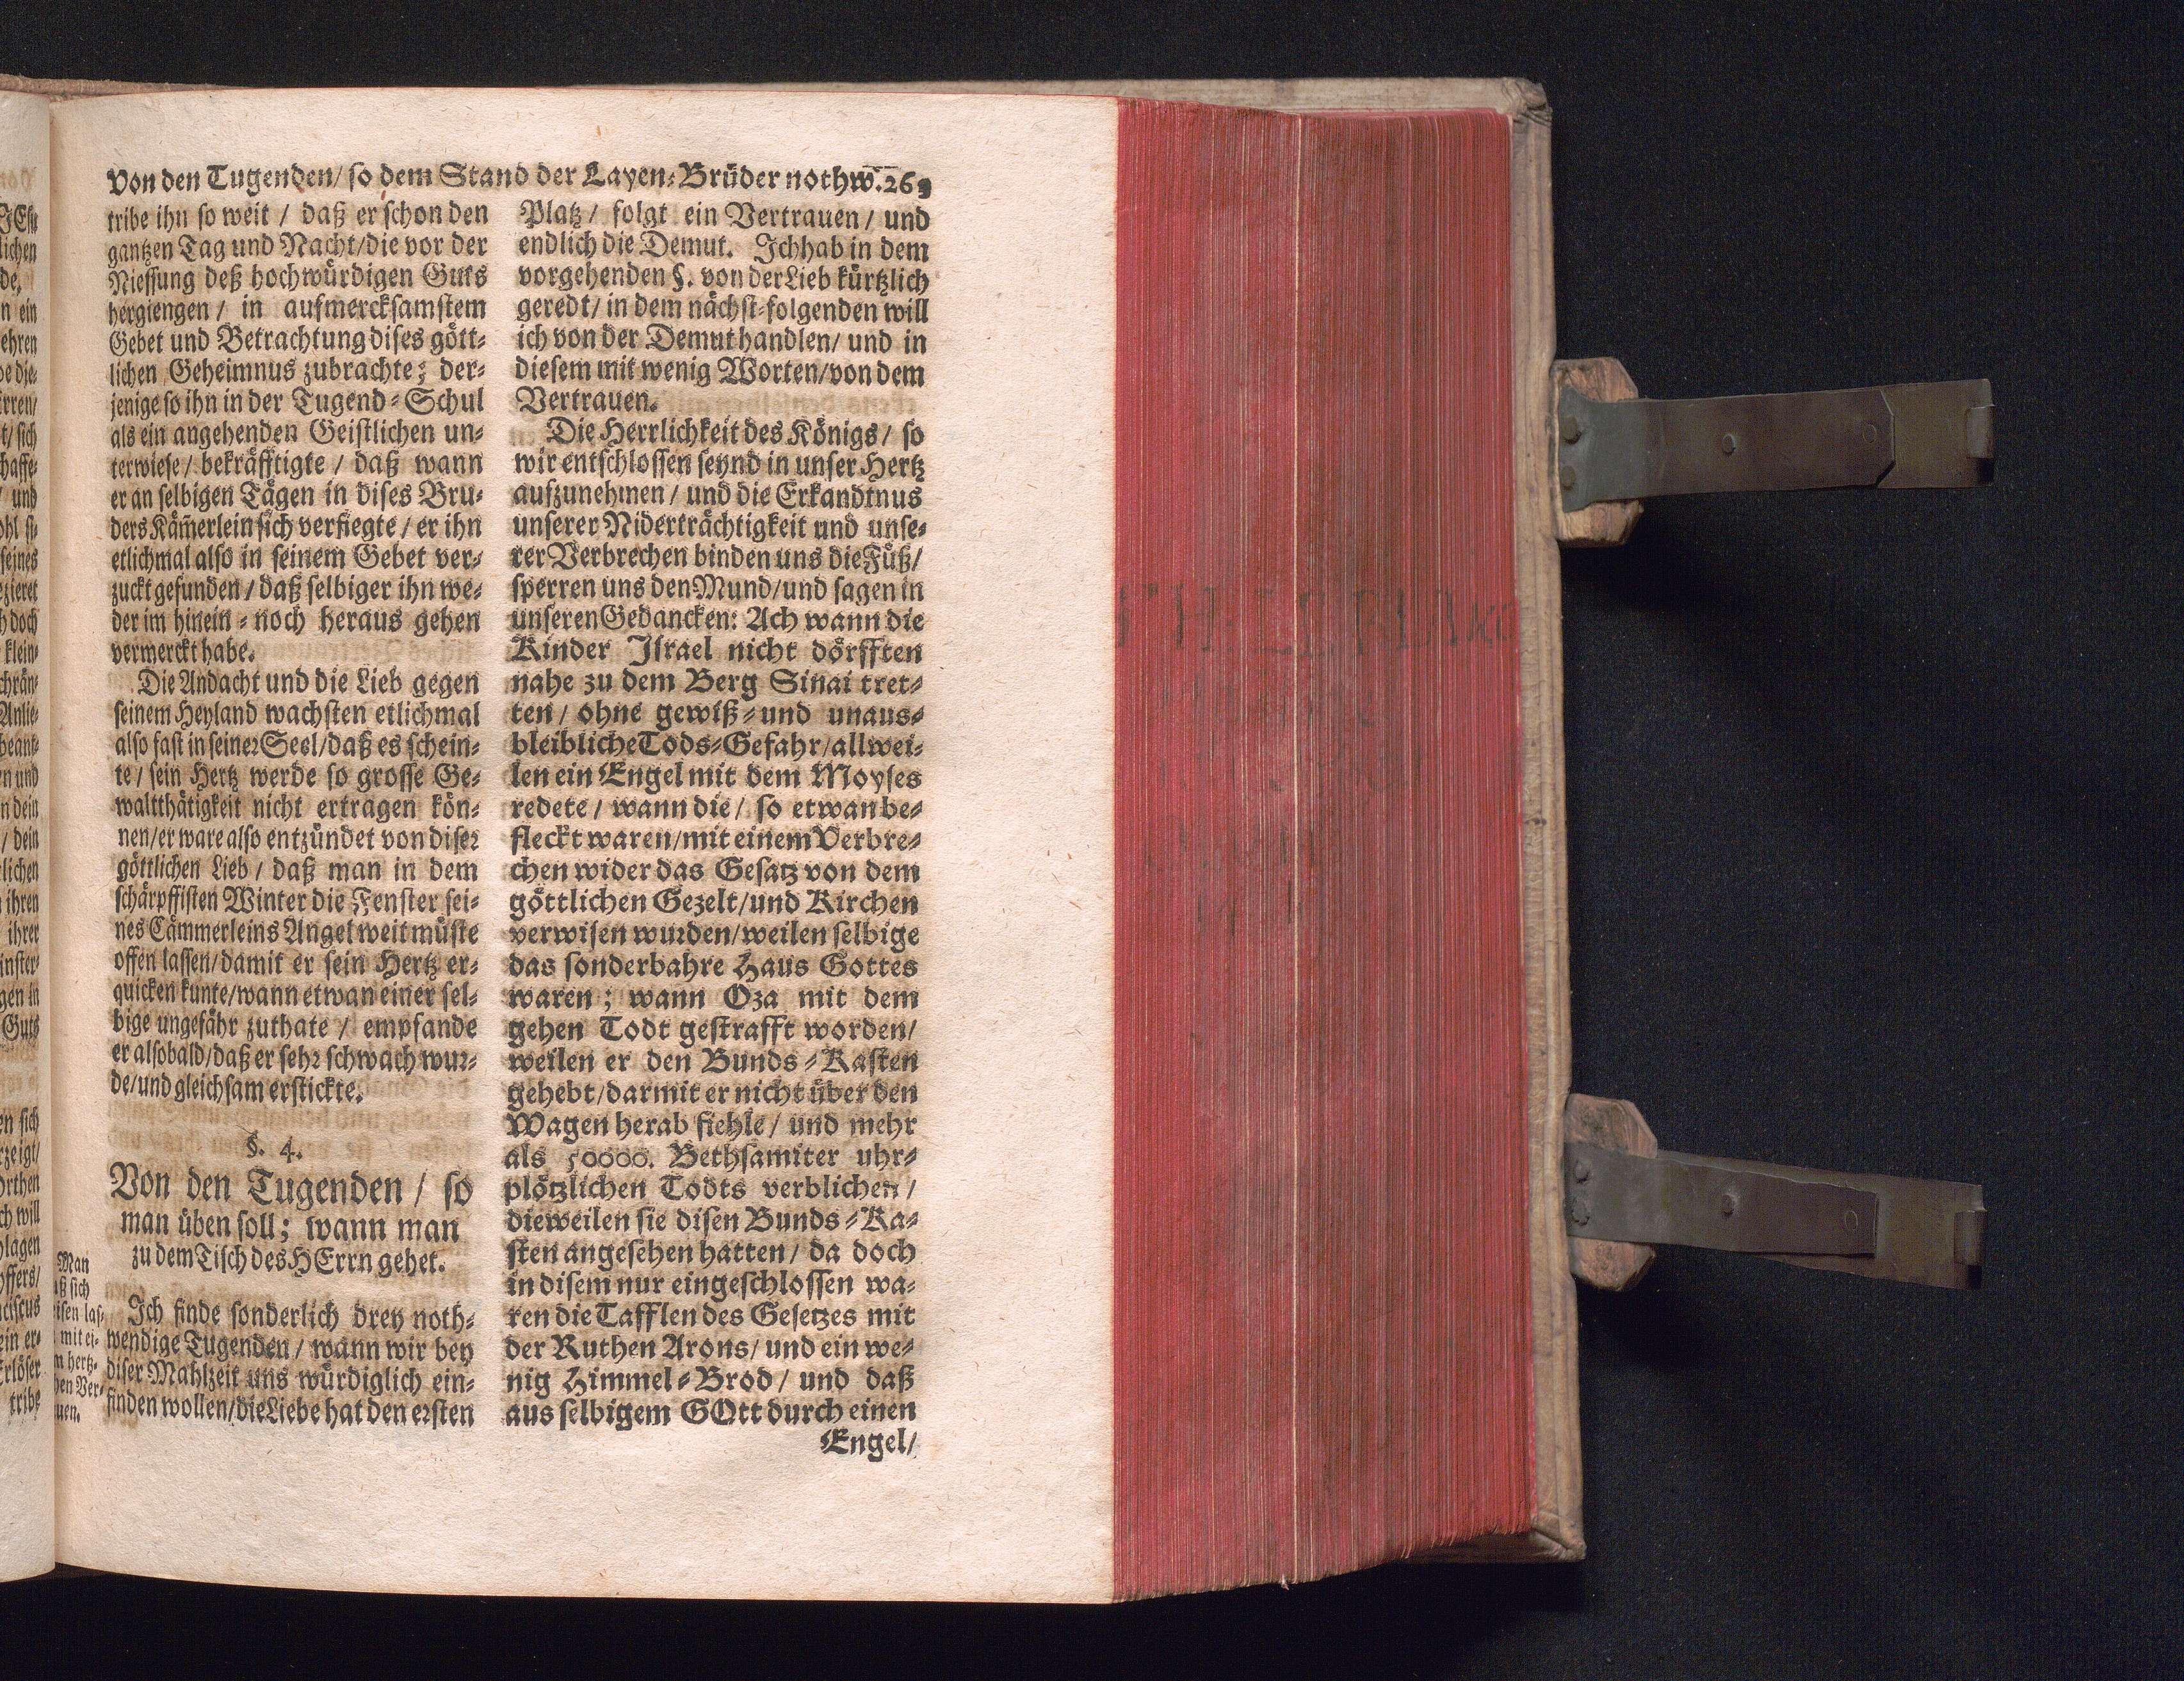 Von den Tugenden/ so dem Stand der Layen-Brüder nothw. 269
tribe ihn so weit / daß er schon den
gantzen Tag und Nacht/die vor der
Niessung deß hochwürdigen Guts
hergiengen / in aufmercksamstem
Gebet und Betrachtung dises gött-
lichen Geheimnus zubrachte; der-
jenige so ihn in der Tugend-Schul
als ein angehenden Geistlichen un-
terwiese / bekräfftigte / daß wann
er an selbigen Tägen in dises Bru-
ders Kam̃erlein sich verfiegte / er ihn
etlichmal also in seinem Gebet ver-
zuckt gefunden / daß selbiger ihn we-
der im hinein- noch heraus gehen
vermerckt habe.
Die Andacht und die Lieb gegen
seinem Heyland wachsten etlichmal
also fast in seiner Seel/daß es schein-
te / sein Hertz werde so grosse Ge-
waltthätigkeit nicht ertragen kön-
nen/er ware also entzündet von diser
göttlichen Lieb / daß man in dem
schärpffisten Winter die Fenster sei-
nes Cämmerleins Angelweit müste
offen lassen/damit er sein Hertz er-
quicken kunte/wann etwan einer sel-
bige ungefähr zuthate / empfande
er alsobald/daß er sehr schwach wur-
de/und gleichsam erstickte.
§. 4.
Von den Tugenden / so
man üben soll; wann man
zu dem Tisch des HErrn gehet.
Man
sich
mit ei-
hertz-
Ver-
Ich finde sonderlich drey noth-
wendige Tugenden / wann wir bey
diser Mahlzeit uns würdiglich ein-
finden wollen/die Liebe hat den ersten
Platz / folgt ein Vertrauen / und
endlich die Demut. Ich hab in dem
vorgehenden §. von der Lieb kürtzlich
geredt/ in dem nächst-folgenden will
ich von der Demut handlen/ und in
diesem mit wenig Worten/von dem
Vertrauen.
Die Herrlichkeit des Königs / so
wir entschlossen seynd in unser Hertz
aufzunehmen / und die Erkandtnus
unserer Niderträchtigkeit und unse-
rer Verbrechen binden uns die Füß/
sperren uns den Mund/und sagen in
unseren Gedancken: Ach wann die
Kinder Israel nicht dörfften
nahe zu dem Berg Sinai tret-
ten / ohne gewiß- und unaus-
bleibliche Tods-Gefahr/allwei-
len ein Engel mit dem Moyses
redete / wann die / so etwan be-
fleckt waren/mit einem Verbre-
chen wider das Gesatz von dem
göttlichen Gezelt/und Kirchen
verwisen wurden/weilen selbige
das sonderbahre Haus Gottes
waren; wann Oza mit dem
gehen Todt gestrafft worden/
weilen er den Bunds-Kasten
gehebt/darmit er nicht über den
Wagen herab fiehle / und mehr
als 50000. Bethsamiter uhr-
plötzlichen Todts verblichen /
dieweilen sie disen Bunds-Ka-
sten angesehen hatten / da doch
in disem nur eingeschlossen wa-
ren die Tafflen des Gesetzes mit
der Ruthen Arons/ und ein we-
nig Himmel-Brod / und daß
aus selbigem GOtt durch einen
Engel/